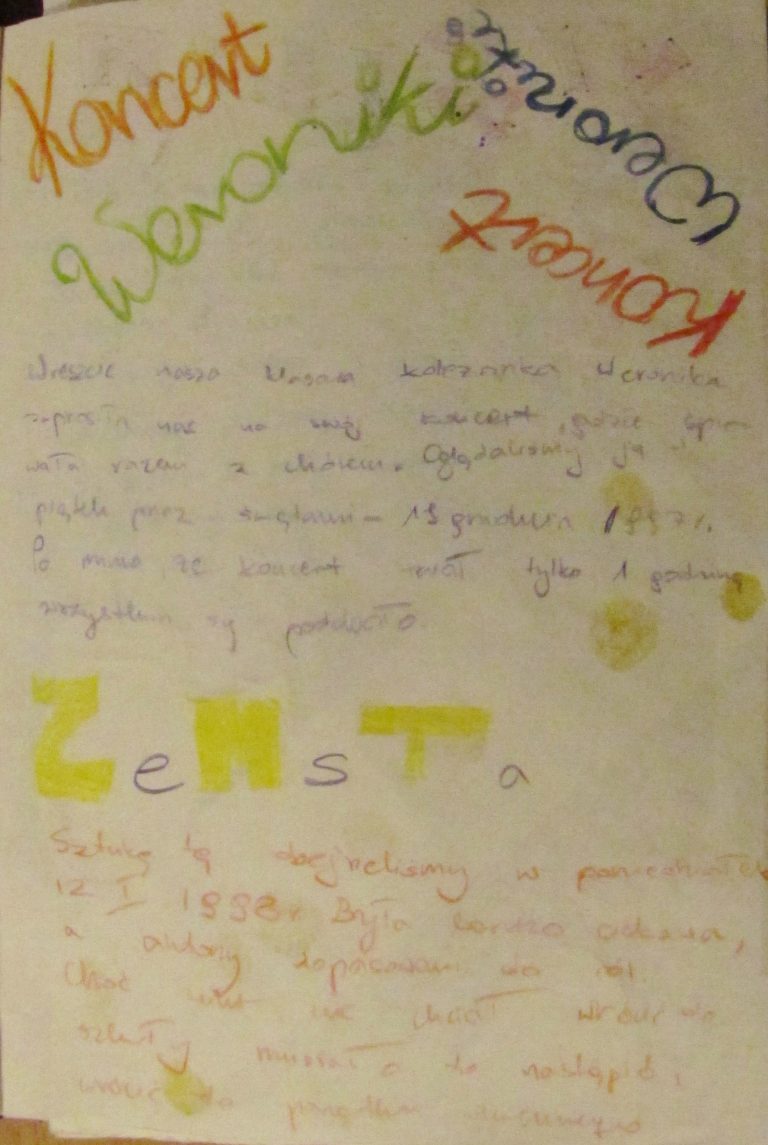 Koncert
Weroniki
Weroniki
Koncert
Wreszcie nasza koleżanka Weronika
zaprosiła nas na swój koncert, gdzie śpie-
wała razem z chórem. Oglądaliśmy ją
piątek przez świętami - 19 grudnia 1997 r.
Po mimo że koncert trwał tylko 1 godzinę
wszystkim się podobało.
ZeMsTa
Sztukę tą obejrzeliśmy w poniedziałek
12 I 1998r. Była bardzo ciekawa,
a aktorzy dopasowani do ról.
Choć nikt nie chciał wrócić do
szkoły musiało to nastąpić,